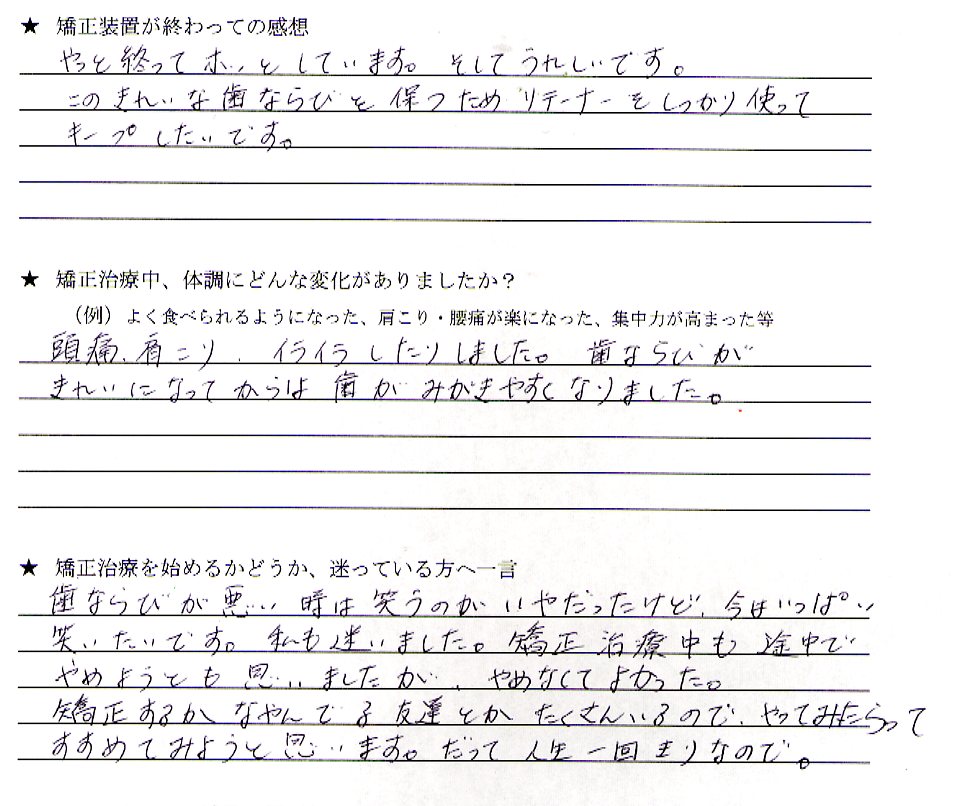 ★ 矯正装置が終わっての感想
やっと終ってホッとしています。そしてうれしいです。
このきれいな歯ならびを保つためリテーナーをしっかり使って
キープしたいです。
★ 矯正治療中、体調にどんな変化がありましたか？
（例）よく食べられるようになった、肩こり・腰痛が楽になった、集中力が高まった等
頭痛、肩こり、イライラしたりしました。歯ならびが
きれいになってからは歯がみがきやすくなりました。
★ 矯正治療を始めるかどうか、迷っている方へ一言
歯ならびが悪い時は笑うのがいやだったけど、今はいっぱい
笑いたいです。私も迷いました。矯正治療中も途中で
やめようとも思いましたが、やめなくてよかった。
矯正するか、なやんでる友達とかたくさんいるので、やってみたらって
すすめてみようと思います。だって人生一回きりなので。